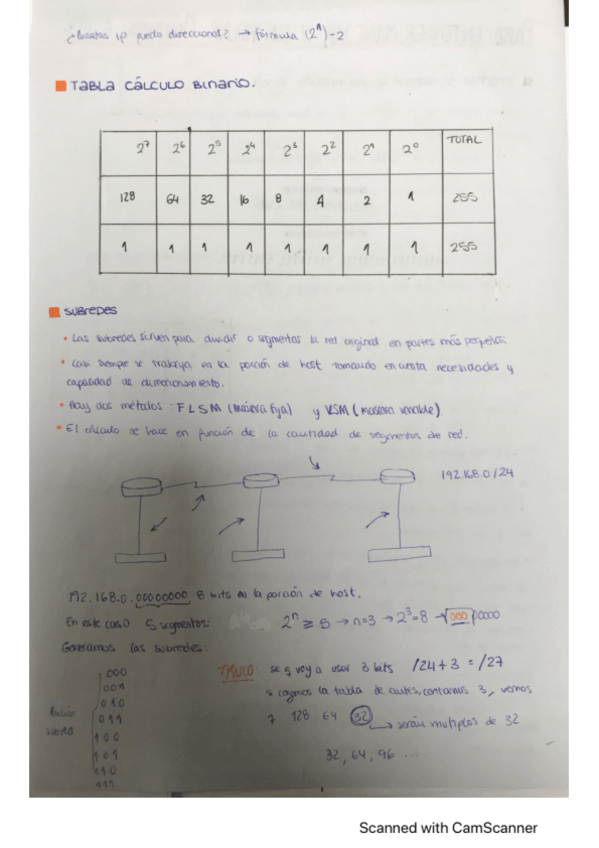 ¿Cuántas ip puedo direccionar? → fórmula (2^n)-2
TABLA CÁLCULO BINARIO.
2^7 2^6 2^5 2^4 2^3 2^2 2^1 2^0 TOTAL
128 64 32 16 8 4 2 1 255
1 1 1 1 1 1 1 1 255
SUBREDES
• Las subredes sirven para dividir o segmentar la red original en partes más pequeñas
• Casi siempre se trabaja en la porción de host tomando en cuenta necesidades y
capacidad de direccionamiento.
• Hay dos métodos: FLSM (máscara fija) y VLSM (máscara variable)
• El cálculo se base en función de la cantidad de segmentos de red.
192.168.0/24
192.168.0.00000000 8 bits en la porción de host.
En este caso 5 segmentos: 2^n ≥ 5 → n=3 → 2^3=8 → 000|00000
Generamos las subredes:
000
001
010
011
100
101
110
111
Porción
TRUCO: se q voy a usar 3 bits /24+3 = /27
cogemos la tabla de antes, contamos 3, vemos
128 64 32
→ serán multiplos de 32
32, 64, 96 ...
Scanned with CamScanner